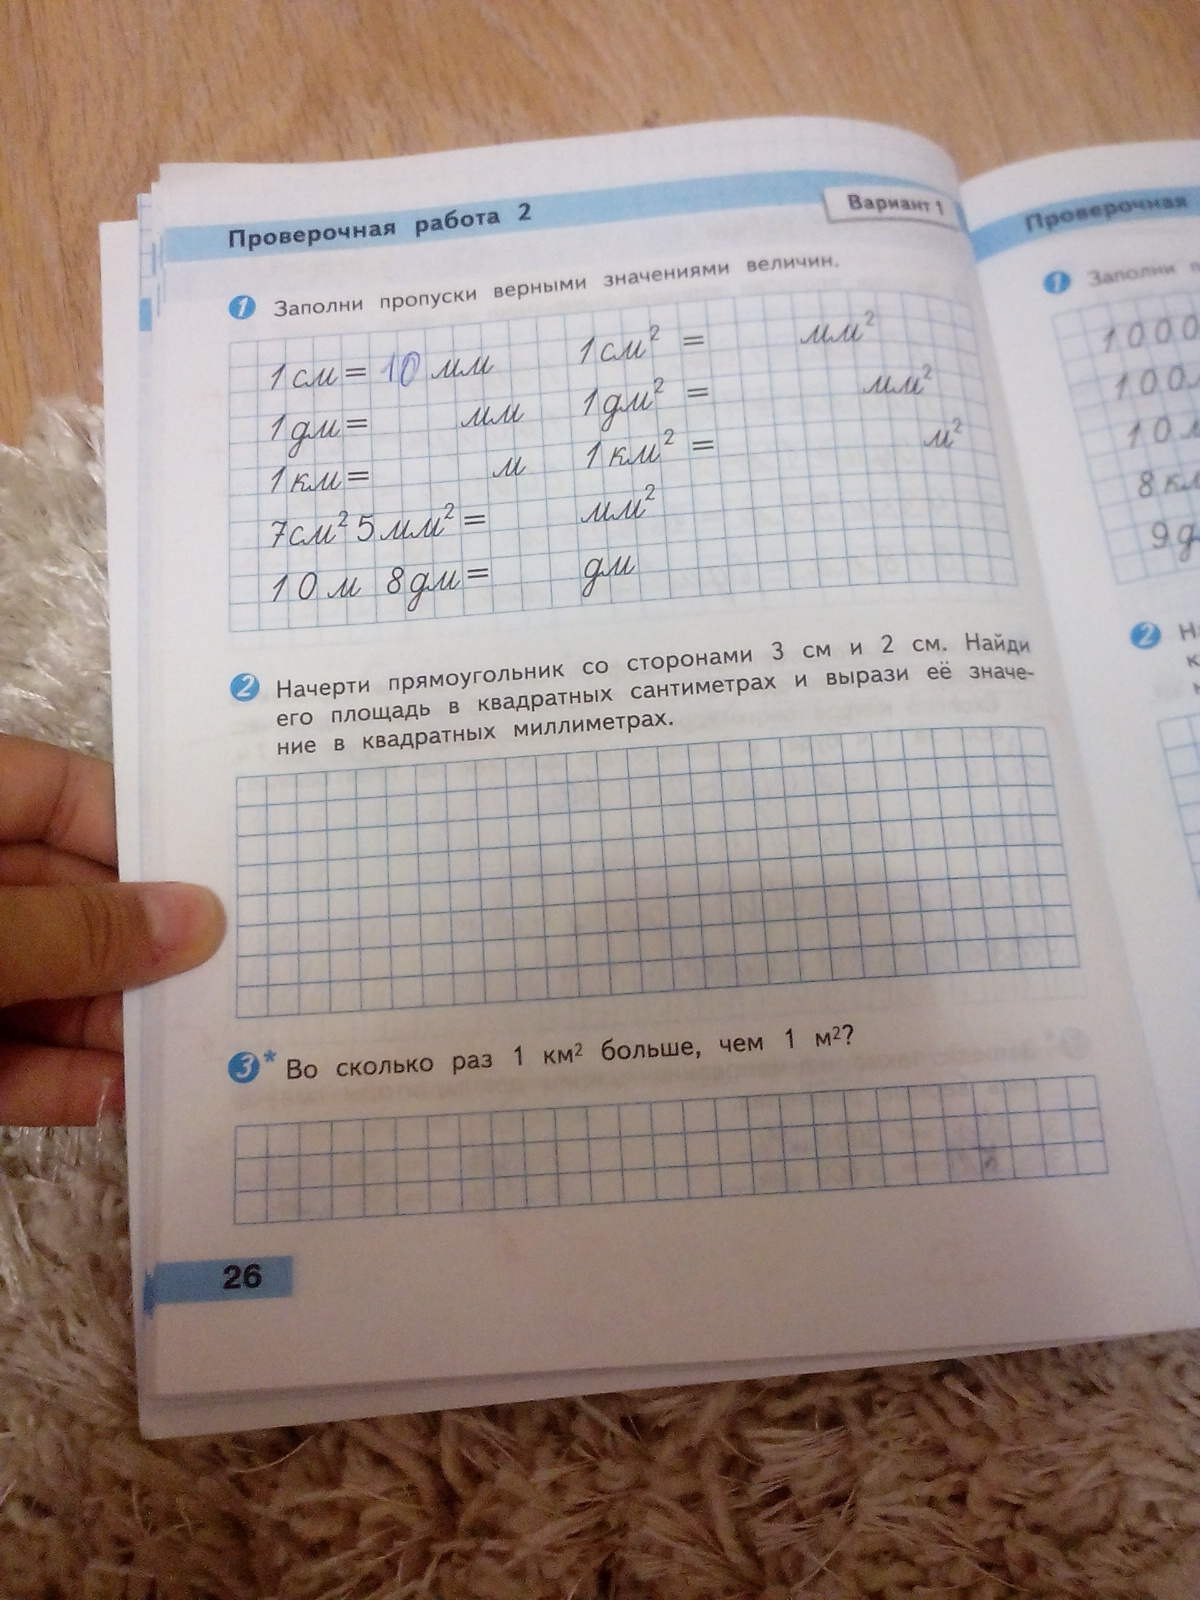 Проверочная работа 2
Вариант 1
1 Заполни пропуски верными значениями величин.
1 см = 10 мм 1 см² = мм²
1 дм = мм 1 дм² = мм²
1 км = м 1 км² = м²
7 см² 5 мм² = мм²
10 м 8 дм = дм
2 Начерти прямоугольник со сторонами 3 см и 2 см. Найди
его площадь в квадратных сантиметрах и вырази её значе-
ние в квадратных миллиметрах.
3* Во сколько раз 1 км² больше, чем 1 м²?
26
Проверочная
1 Заполни
1000
100
10
8 км
9 д
2